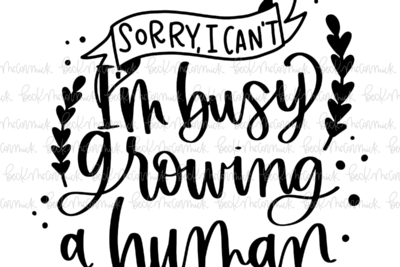 SORRY, I CAN'T
I'm busy
growing
a human